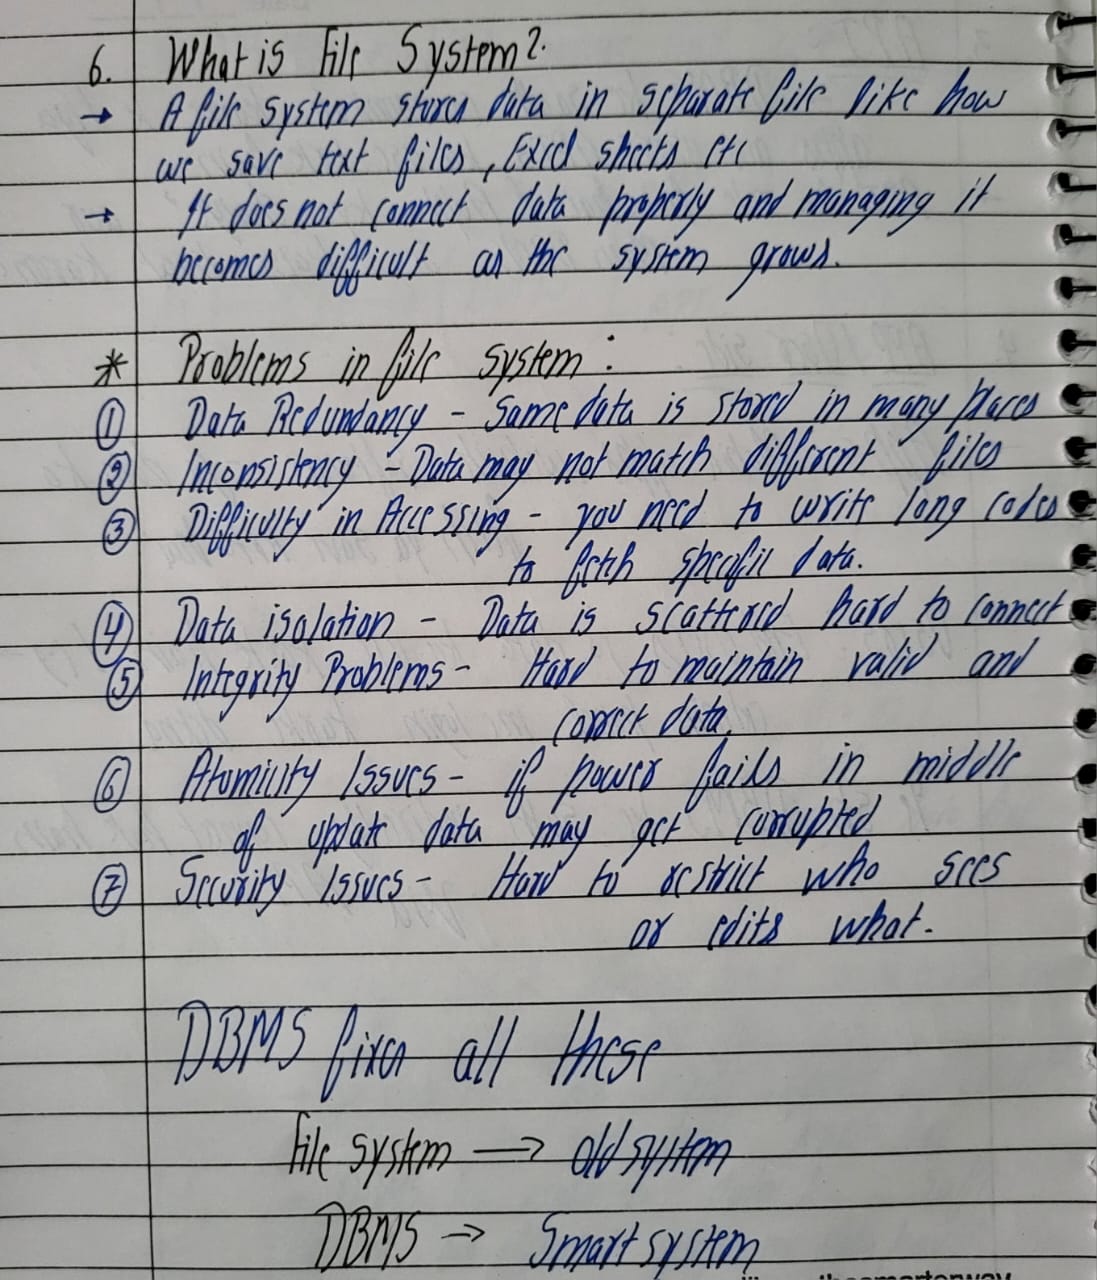 6. What is File System?
→ A file system stores data in separate file like how
we save text files, Excel sheets etc
→ It does not connect data properly and managing it
becomes difficult as the system grows.
* Problems in file system:
① Data Redundancy - Same data is stored in many places
② Inconsistency - Data may not match different files
③ Difficulty in Accessing - you need to write long codes
to fetch specific data.
④ Data isolation - Data is scattered hard to connect
⑤ Integrity Problems - Hard to maintain valid and
correct data.
⑥ Atomicity Issues - if power fails in middle
of update data may get corrupted
⑦ Security Issues - Hard to restrict who sees
or edits what.
DBMS fixes all these
File system → old system
DBMS → Smart system